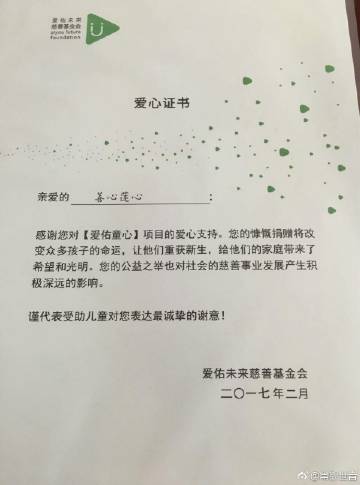 爱佑未来
慈善基金会
ayou future
foundation
爱心证书
亲爱的 善心莲心 :
感谢您对【爱佑童心】项目的爱心支持。您的慷慨捐赠将改
变众多孩子的命运，让他们重获新生，给他们的家庭带来了
希望和光明。您的公益之举也对社会的慈善事业发展产生积
极深远的影响。
谨代表受助儿童对您表达最诚挚的谢意！
爱佑未来慈善基金会
二〇一七年二月